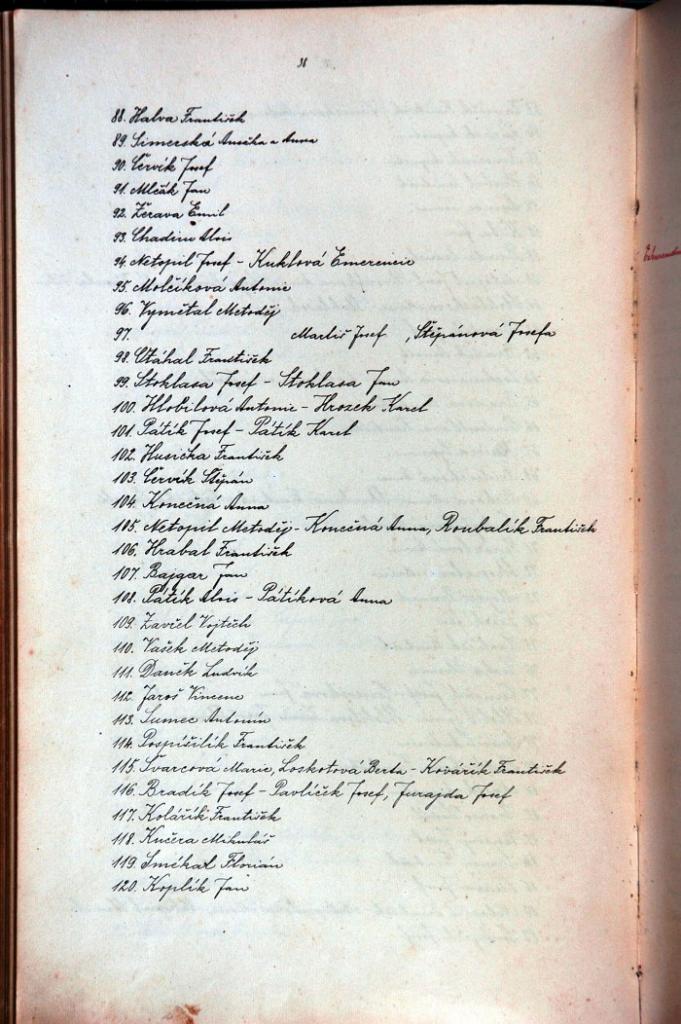 88. Halva František
89. Simerská Anežka a Anna
90. Červík Josef
91. Mlčák Jan
92. Žerava Emil
93. Chadim Alois
94. Netopil Josef - Kuklová Emerencie
95. Molčíková Antonie
96. Vymětal Metoděj
97. Martiš Josef, Štěpánová Josefa
98. Otáhal František
99. Stoklasa Josef - Stoklasa Jan
100. Hlobilová Antonie - Hrozek Karel
101. Pátík Josef - Pátík Karel
102. Husička František
103. Červík Štěpán
104. Konečná Anna
105. Netopil Metoděj - Konečná Anna, Roubalík František
106. Hrabal František
107. Bajgar Jan
108. Pátík Alois - Pátíková Anna
109. Zavřel Vojtěch
110. Vašek Metoděj
111. Daněk Ludvík
112. Jaroš Vincenc
113. Sumec Antonín
114. Pospíšilík František
115. Švarcová Marie, Loskotová Berta - Kovářík František
116. Bradík Josef - Pavlíček Josef, Jurajda Josef
117. Kolářík František
118. Kučera Mikuláš
119. Smékal Florián
120. Koplík Jan